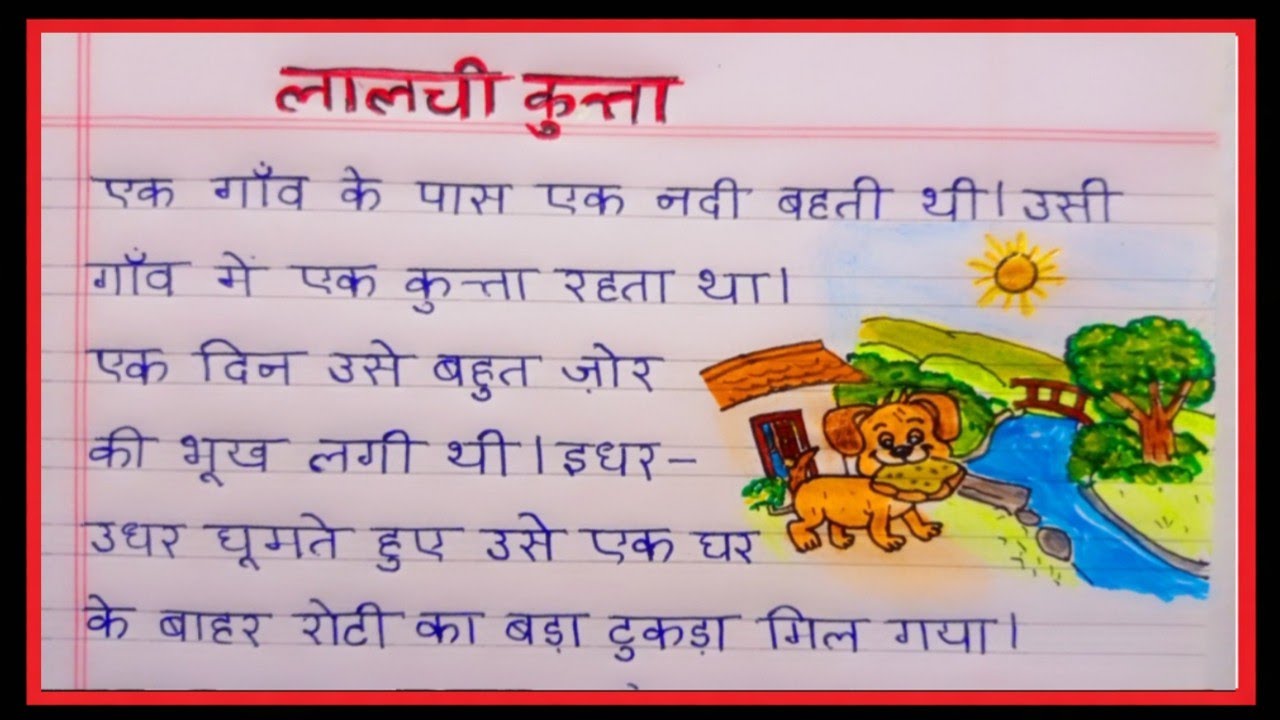 लालची कुत्ता
एक गाँव के पास एक नदी बहती थी। उसी
गाँव में एक कुत्ता रहता था।
एक दिन उसे बहुत ज़ोर
की भूख लगी थी। इधर-
उधर घूमते हुए उसे एक घर
के बाहर रोटी का बड़ा टुकड़ा मिल गया।